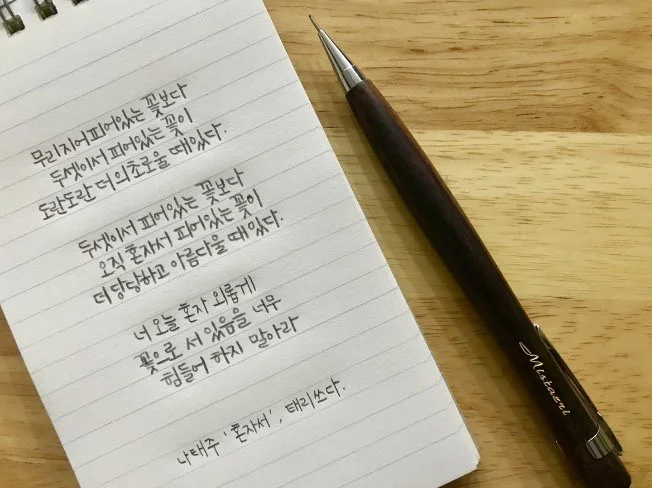 무리지어 피어있는 꽃보다
두셋이서 피어있는 꽃이
도란도란 더 의초로울 때 있다.
두셋이서 피어있는 꽃보다
오직 혼자서 피어있는 꽃이
더 당당하고 아름다울 때 있다.
너 오늘 혼자 외롭게
꽃으로 서 있음을 너무
힘들어 하지 말아라
나태주 '혼자서', 태리쓰다.
Mistazri